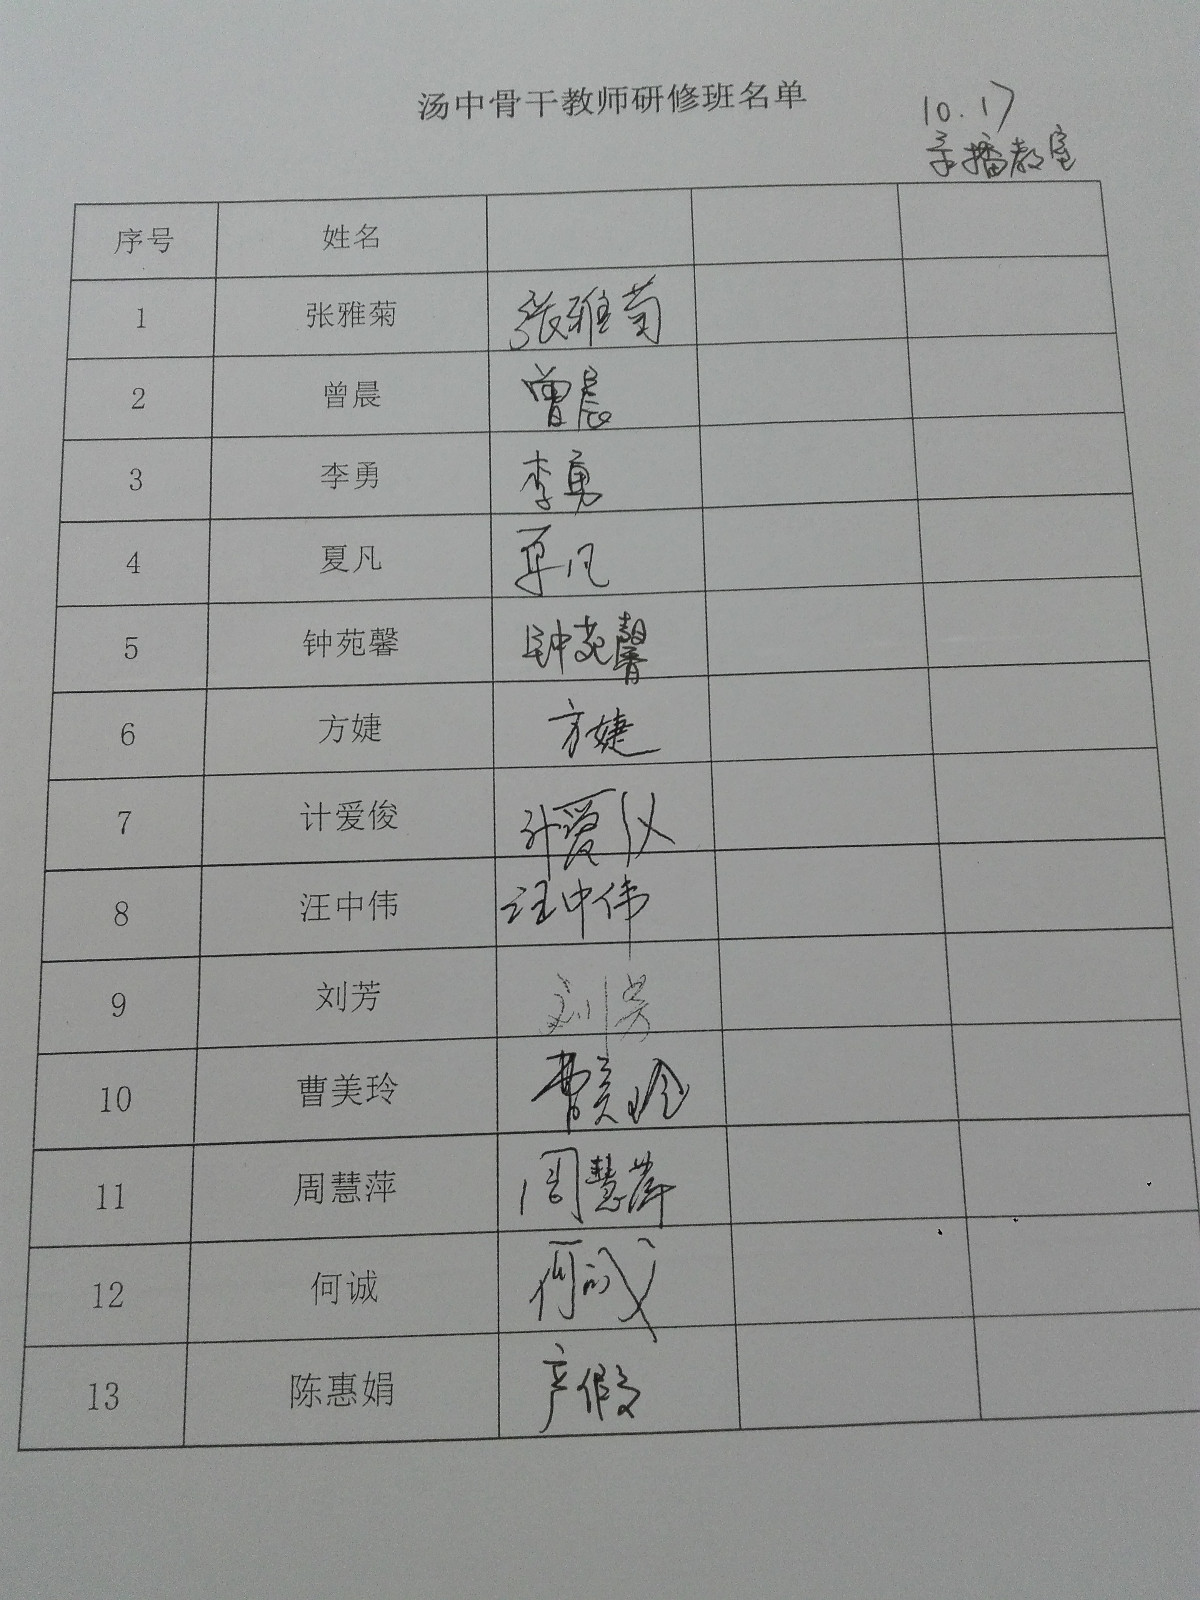 汤中骨干教师研修班名单
10.17
录播教室
序号 姓名
1 张雅菊 张雅菊
2 曾晨 曾晨
3 李勇 李勇
4 夏凡 夏凡
5 钟苑馨 钟苑馨
6 方婕 方婕
7 计爱俊 计爱俊
8 汪中伟 汪中伟
9 刘芳 刘芳
10 曹美玲 曹美玲
11 周慧萍 周慧萍
12 何诚 何诚
13 陈惠娟 产假